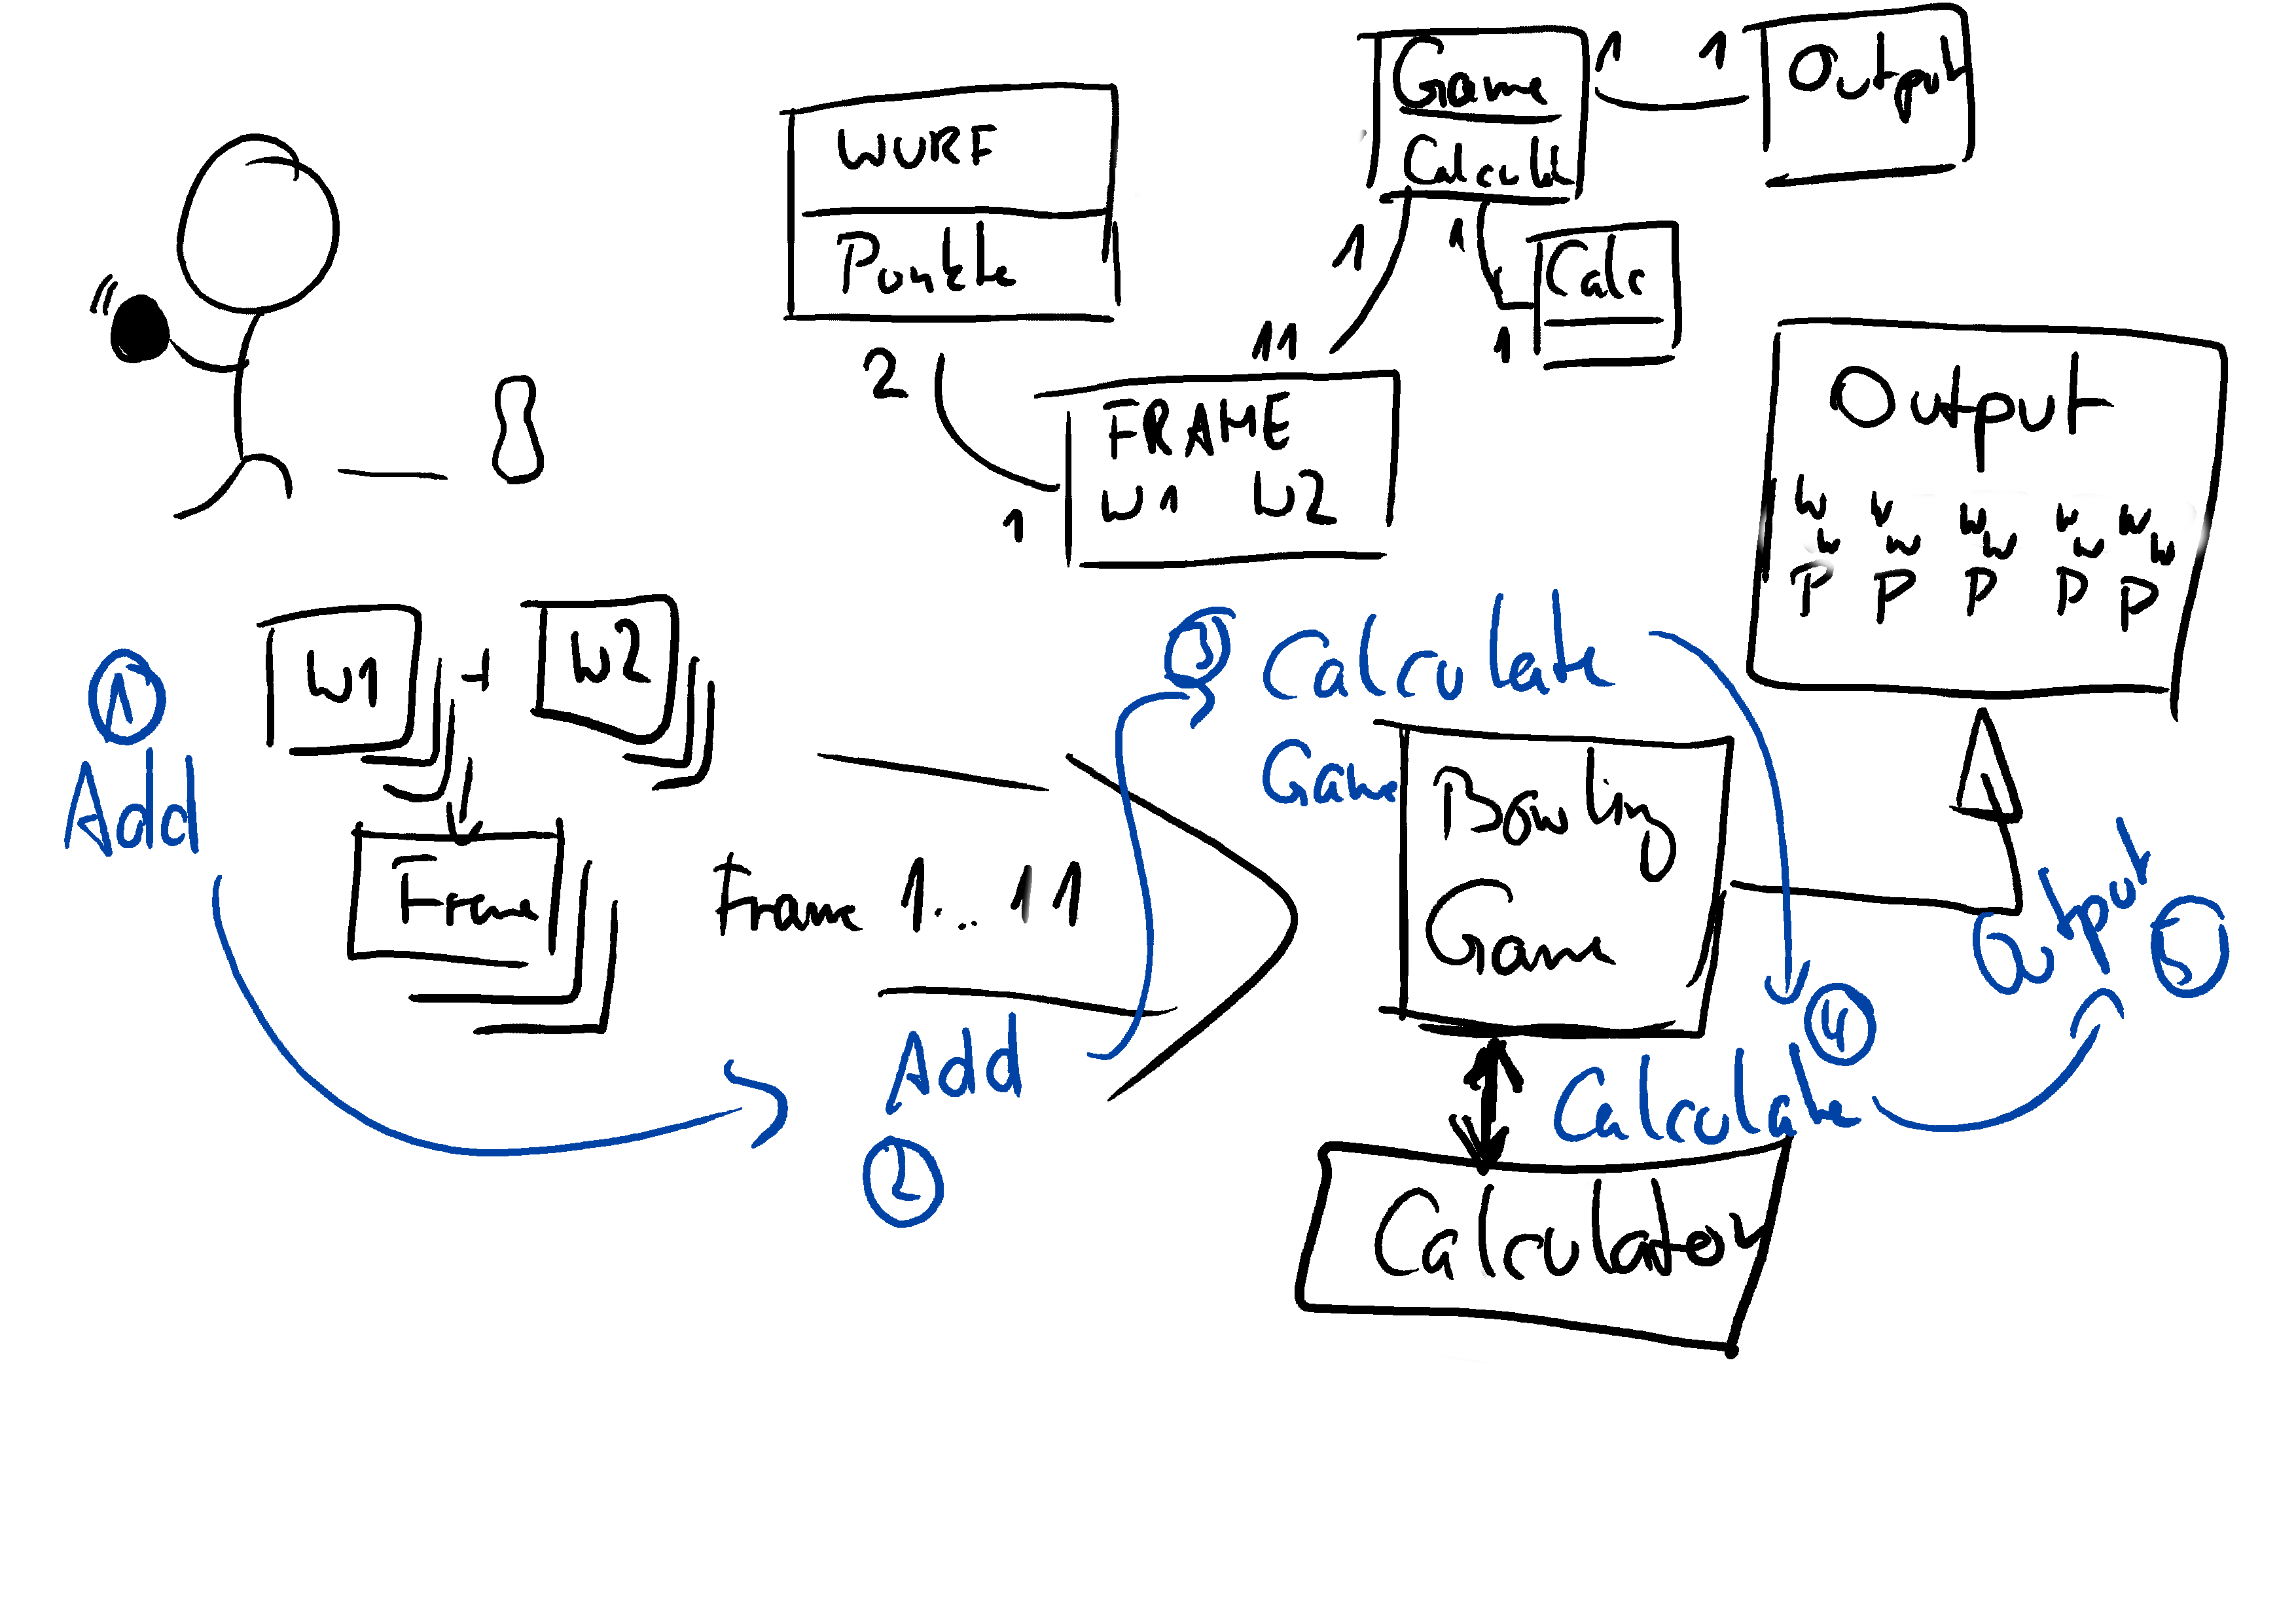 WURF
Punkte
2
1
FRAME
W1 W2
11
1
Game
Calculate
1 1
Output
1
Calc
1
Output
W W W W W
W W W W W
P P P P P
1
Add
W1 + W2
Frame
Frame 1...11
Add
2
3 Calculate
Game
Bowling
Game
4
Calculate
Calculator
Output
5